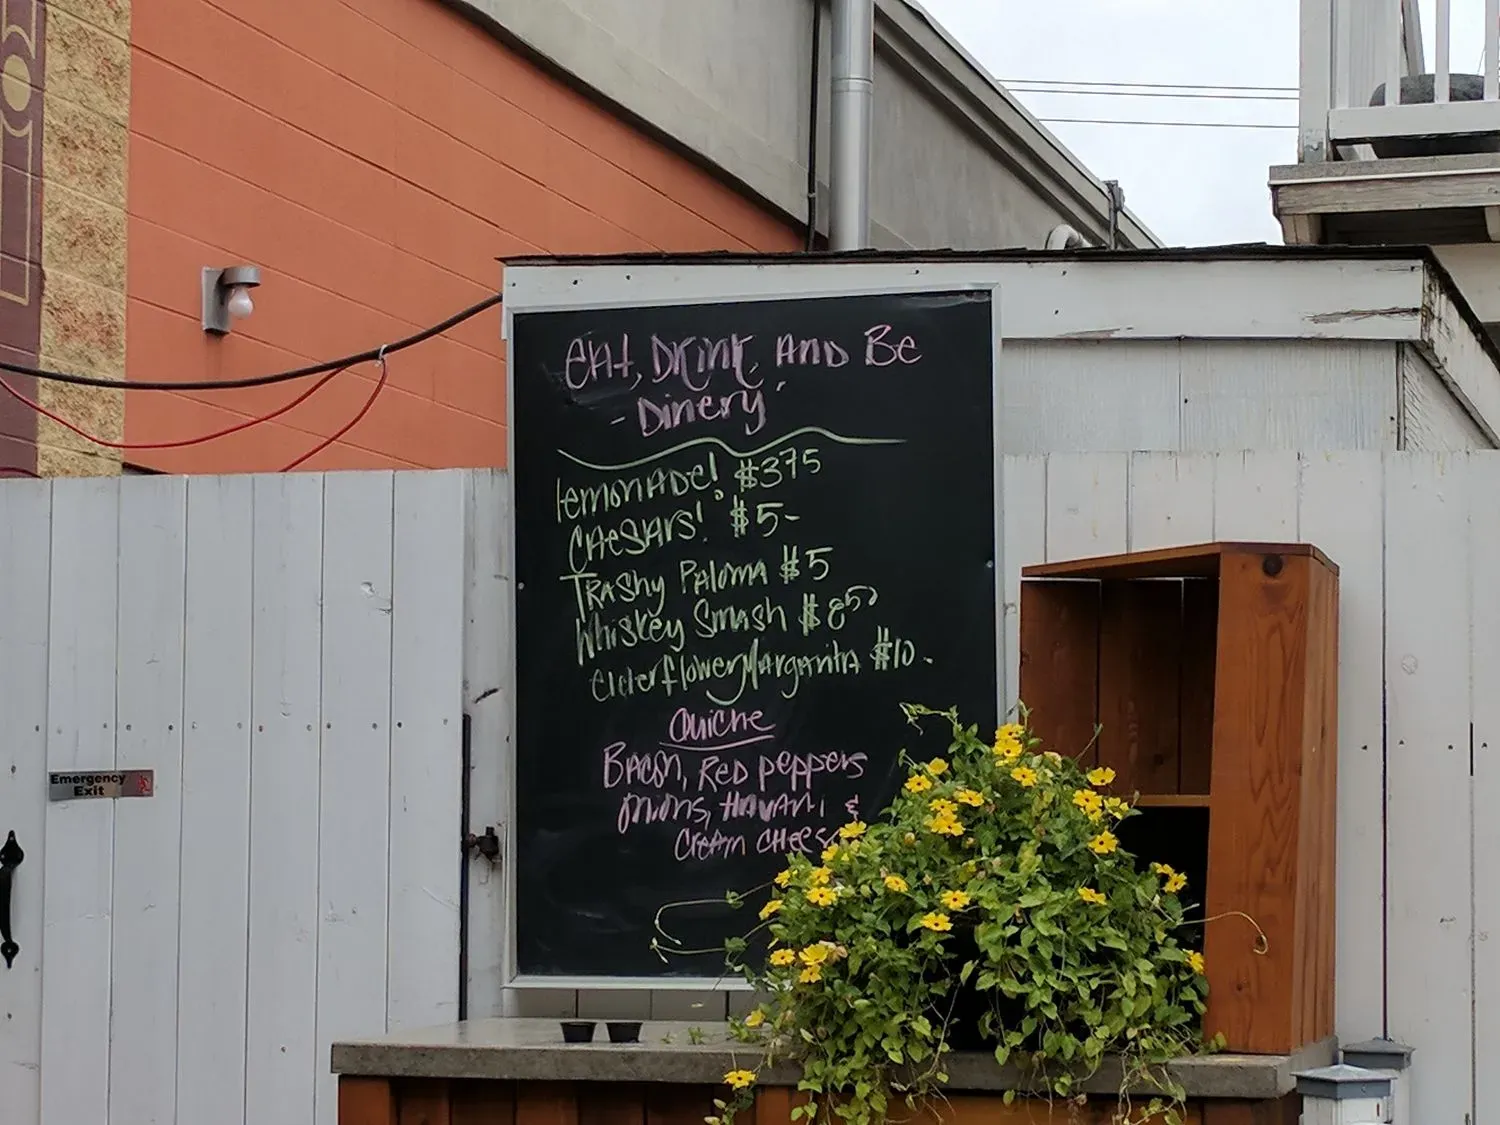 Eat, Drink, And Be
- Dinery
Lemonade! $375
Caesars! $5-
Trashy Paloma $5
Whiskey Smash $850
Elderflower Margarita $10.
Quiche
Bacon, Red peppers
Onions, Havarti &
Cream Cheese
Emergency
Exit